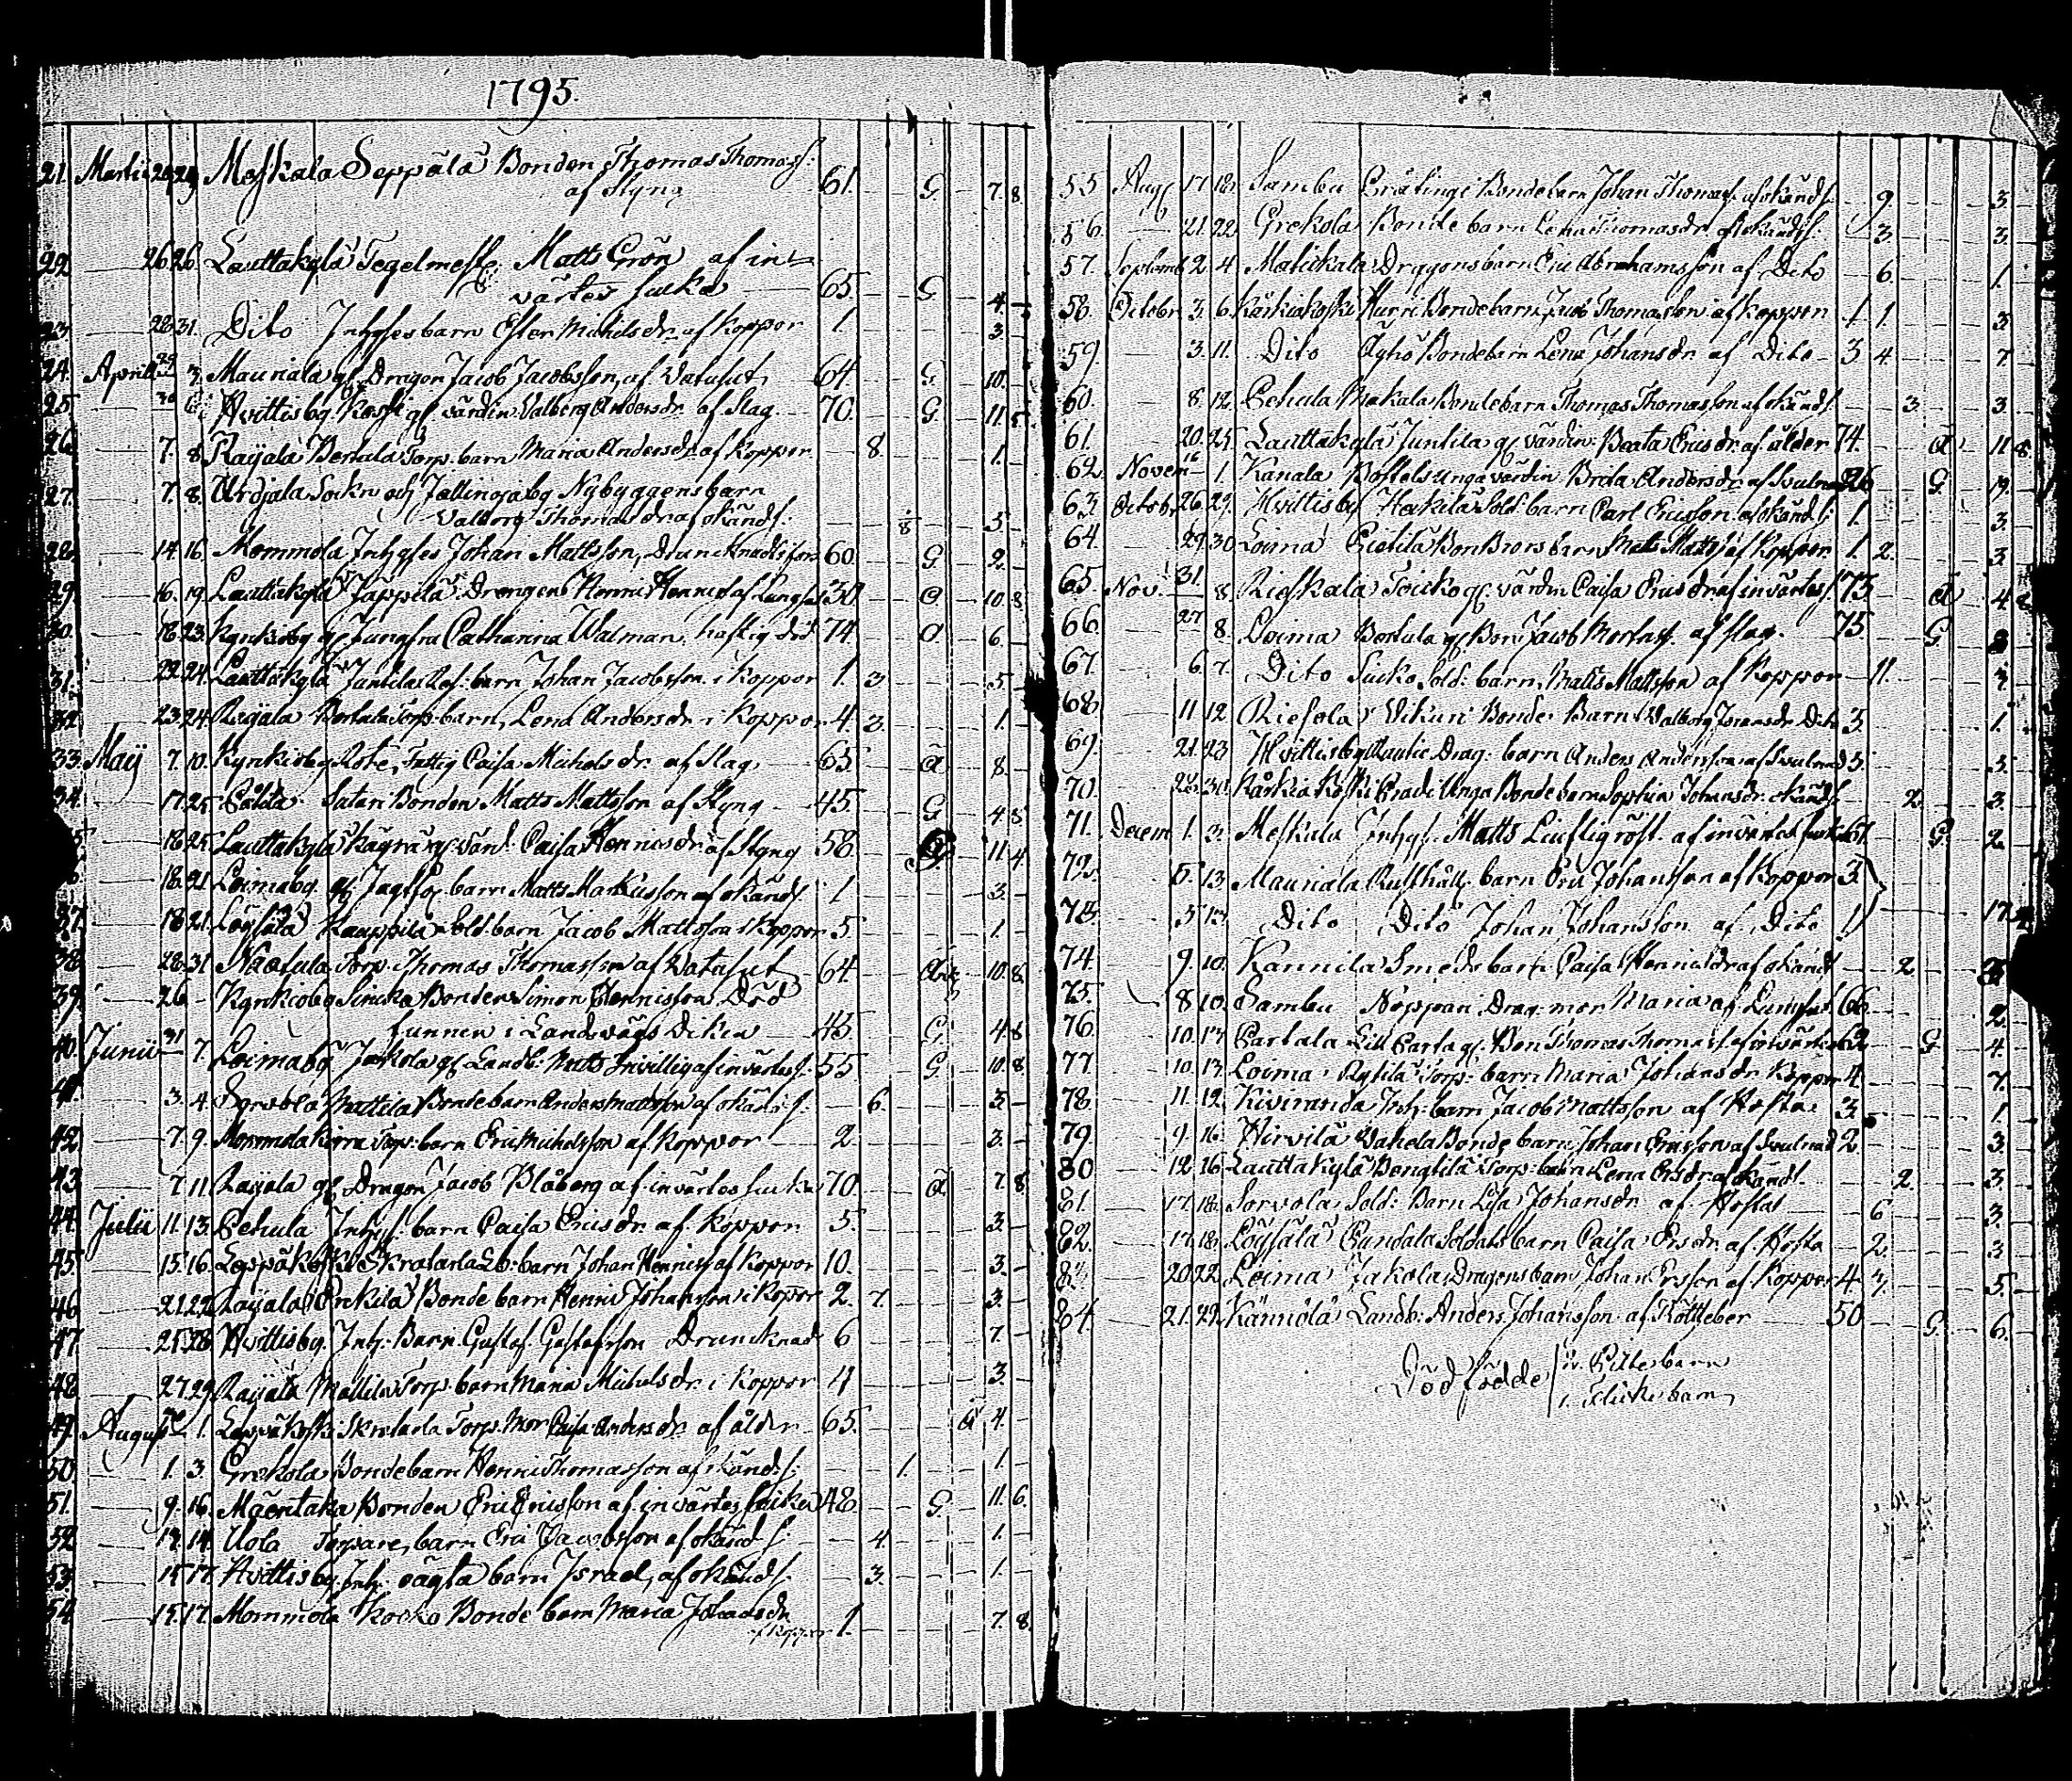 1795.
21. Martii 24 29 Meskala Seppälä Bonden Thomas Thomass: 61. G. 7. 8.
af Styng
22. 26 26. Lauttakylä Tegelmest. Matts Grön af in-
värtes siuka 65. G. 4.
23. 28 31. Dito Inhyses barn Ester Michelsdr. af Koppor 1. 3.
24. Aprill 3. Mauriala gl. Dragon Jacob Jacobsson, af Vatusut 64. G. 10.
25. 30 6. Hvittisby Kaski gl. värdin. Valborg Andersdr. af Slag 70. G. 11. 5
26. 7. 8. Raijala Bertala Torp. barn Maria Andersdr. af Koppor 8. 1.
27. 7. 8. Urdjala Sockn och Nybyggens barn
Valborg Thomasdr. af okänds: 8 5.
28. 14. 16. Mommola Inhyses Johan Mattsson, 60. G. 2.
29. 16. 19. Lauttakylä Jäppilä Drengen Henric Henricss. af Lungsot 30 G. 10. 8
30. 18. 23. Kynkisby gl. Jungfru Catharina Walman, haftig död 74. 6.
31. 22. 24. Lauttakylä Juntilas barn Johan Jacobsson i Koppor 1. 3. 5.
32. 23. 24. Raijala Bertala Torp. barn, Lena Andersdr. i Koppor 4. 3. 1.
33. Maij 7. 10. Kynkisby Rote, Fattig Caisa Michelsdr. af Slag 65. 8.
34. 17. 25. Satari Bonden Matts Mattsson af Styng 45. G. 4. 8
18. 25. Lauttakylä Kägrä gl. värd. Caisa Henricsdr. af Styng 58. 11. 4
18. 21. Loimaby. barn Matts Markusson af okänds: 1 3.
37. 18 21. Löysälä Kauppila Sold. barn Jacob Mattsson i Koppor 5. 1.
38. 28. 31 Naatula Torp. Thomas Thomasson af Vatusut 64. 10. 8.
39. 26 Kynkisby Sinicka Bonden Simon Henricsson Död
funnen i Landswägs Diken 45. G. 4. 8
40. Junii 31 7. Loimaby Jackola gl. Landb: Matts af invärtes s. 55. G. 10. 8
41. 3. 4. Sorvola Mattila Bonde barn Anders Mattsson af okänd s. 6. 3.
42. 7. 9. Mommola Torp. barn Eric Michelsson af Koppor 2. 3.
43. 7. 11. Raijala gl. Dragon Jacob Blåberg af invärtes siuka 70. 7. 8
44. Julii 11. 13. Pehula Inhys. barn Caisa Ericsdr. af Koppor 5. 3.
45. 15. 16. Leppäkoski Skratarla Lb: barn Johan Henricss. af Koppor 10. 3.
46 21 22 Raijala Erckilä Bonde barn Henric Johansson i Koppor 2. 7. 3.
47 25 28 Hvittisby. Inh. Barn. Gustaf Gustafsson Druncknad 6 7.
48. 27. 29. Raijala Mattila Torp. barn Maria Michelsdr. i Koppor 11 3.
49. August 1. Leppäkoski Skratarla Torp. Mor Caisa Andersdr. af ålder 65. 4.
50. 1. 3. Grekola Bonde barn Henric Thomasson af okänds: 1. 1.
51. 9. 16. Mäentaka Bonden Eric Ericsson af invärtes siuka 48. G. 11. 6.
52 13. 14. Uola Torpare, barn Eric Jacobsson af okänd s: 4. 1.
53. 15 17. Hvittisby Inh. oägta barn Israel, af okänd s. 3. 1.
54 15. 17. Mommola Kocko Bonde barn Maria Johansdr.
af Koppor 1. 7. 8
55 Aug 17 18. Sambu Prälingi Bonde barn Johan Thomass. af okänds. 9. 3.
56. 21. 22. Grekola Bonde barn Lena Thomasdr. af okändss: 3. 3.
57. Septemb 2. 4. Matickala Dragons barn Eric Abrahamsson af Dito 6. 1.
58. Octobr 3. 6. Karhiakoski Hurri Bonde barn Jacob Thomasson af Koppor 1. 1. 3
59. 3. 11. Dito Äyhö Bonde barn Lena Johansdr. af Dito 3 4. 7.
60. 8. 12. Pehula Makala Bonde barn Thomas Thomasson af okänds. 3. 3.
61. 20. 25. Lauttakylä Juntila gl. värdin: Beata Ericsdr. af ålder 74. 11 8.
62. Novem 16 1. Kanala unga värdin Brita Andersdr. af Svulnad 26 G. 19.
63 Octobr. 26. 29. Hvittisby Heikilä Sold. barn Carl Ericsson af okänd s: 1. 3.
64. 29 30 Loima Pietilä barn Matts Mattss. af Koppor 1. 2. 3
65. Nov. 31. 8. Rieskala Toicko gl. värdin Caisa Ericsdr. af invärtes s. 73 4
66. 27 8. Loima Bertula gl. Bon. Jacob Mortenss. af slag. 75. G.
67. 6. 7. Dito Sucko Sold: barn. Matts Mattsson af Koppor 11. 3.
68. 11 12 Riesola Vikari Bonde Barn Valborg Johansdr. Dito 3. 1.
69. 21. 23 Hvittisby Drag: barn Anders Andersson af Svulnad 3. 5.
70. Karhiakoski Unga Bonde barn Sophia Johansdr. okänds. 2. 3.
71. Decem 1. 3. Meskala Inhys. Matts af invärtes siuka 67. G. 2.
72. 5. 13. Mauriala Rusthåll. barn Eric Johansson af Koppor 3
73. 5 13. Dito Dito Johan Johansson af Dito 1 17.
74. 9. 10. Kannila Smeds barn Caisa Henricsdr. af okänd 2
75. 8 10. Sambu Noppari Drag. mor Maria af Lungsot. 66. 2.
76. 10. 17 Partala Lill Parta gl. Bon. Thomas Thomass. af invärtes 62 G 4.
77. 10. 13. Loima Rytilä Torp. barn Maria Johansdr. Koppor 4. 7.
78 11. 12. Kiviranda Inh. barn Jacob Mattsson af Hosta 3 1.
79. 9. 16. Hirvilä Bonde barn Johan Ericsson af Svulnad 2. 3.
80 12. 16. Lauttakylä Torp. barn Lena Ersdr. af okänd s. 2. 3.
81. 17. 18. Sorvola Sold: Barn Lisa Johansdr. af Hostat 6 3.
82. 17. 18. Löysälä Soldats barn Caisa Ersdr. af Hosta 2. 3
83. 20 22. Loima Jakola Dragons barn Johan Ersson af Koppor 4. 3. 5.
84 21. 29. Kännölä Landb. Anders Johansson af Köttleber 50. G. 6.
Död födde 2. Piltebarn
1. Flickebarn